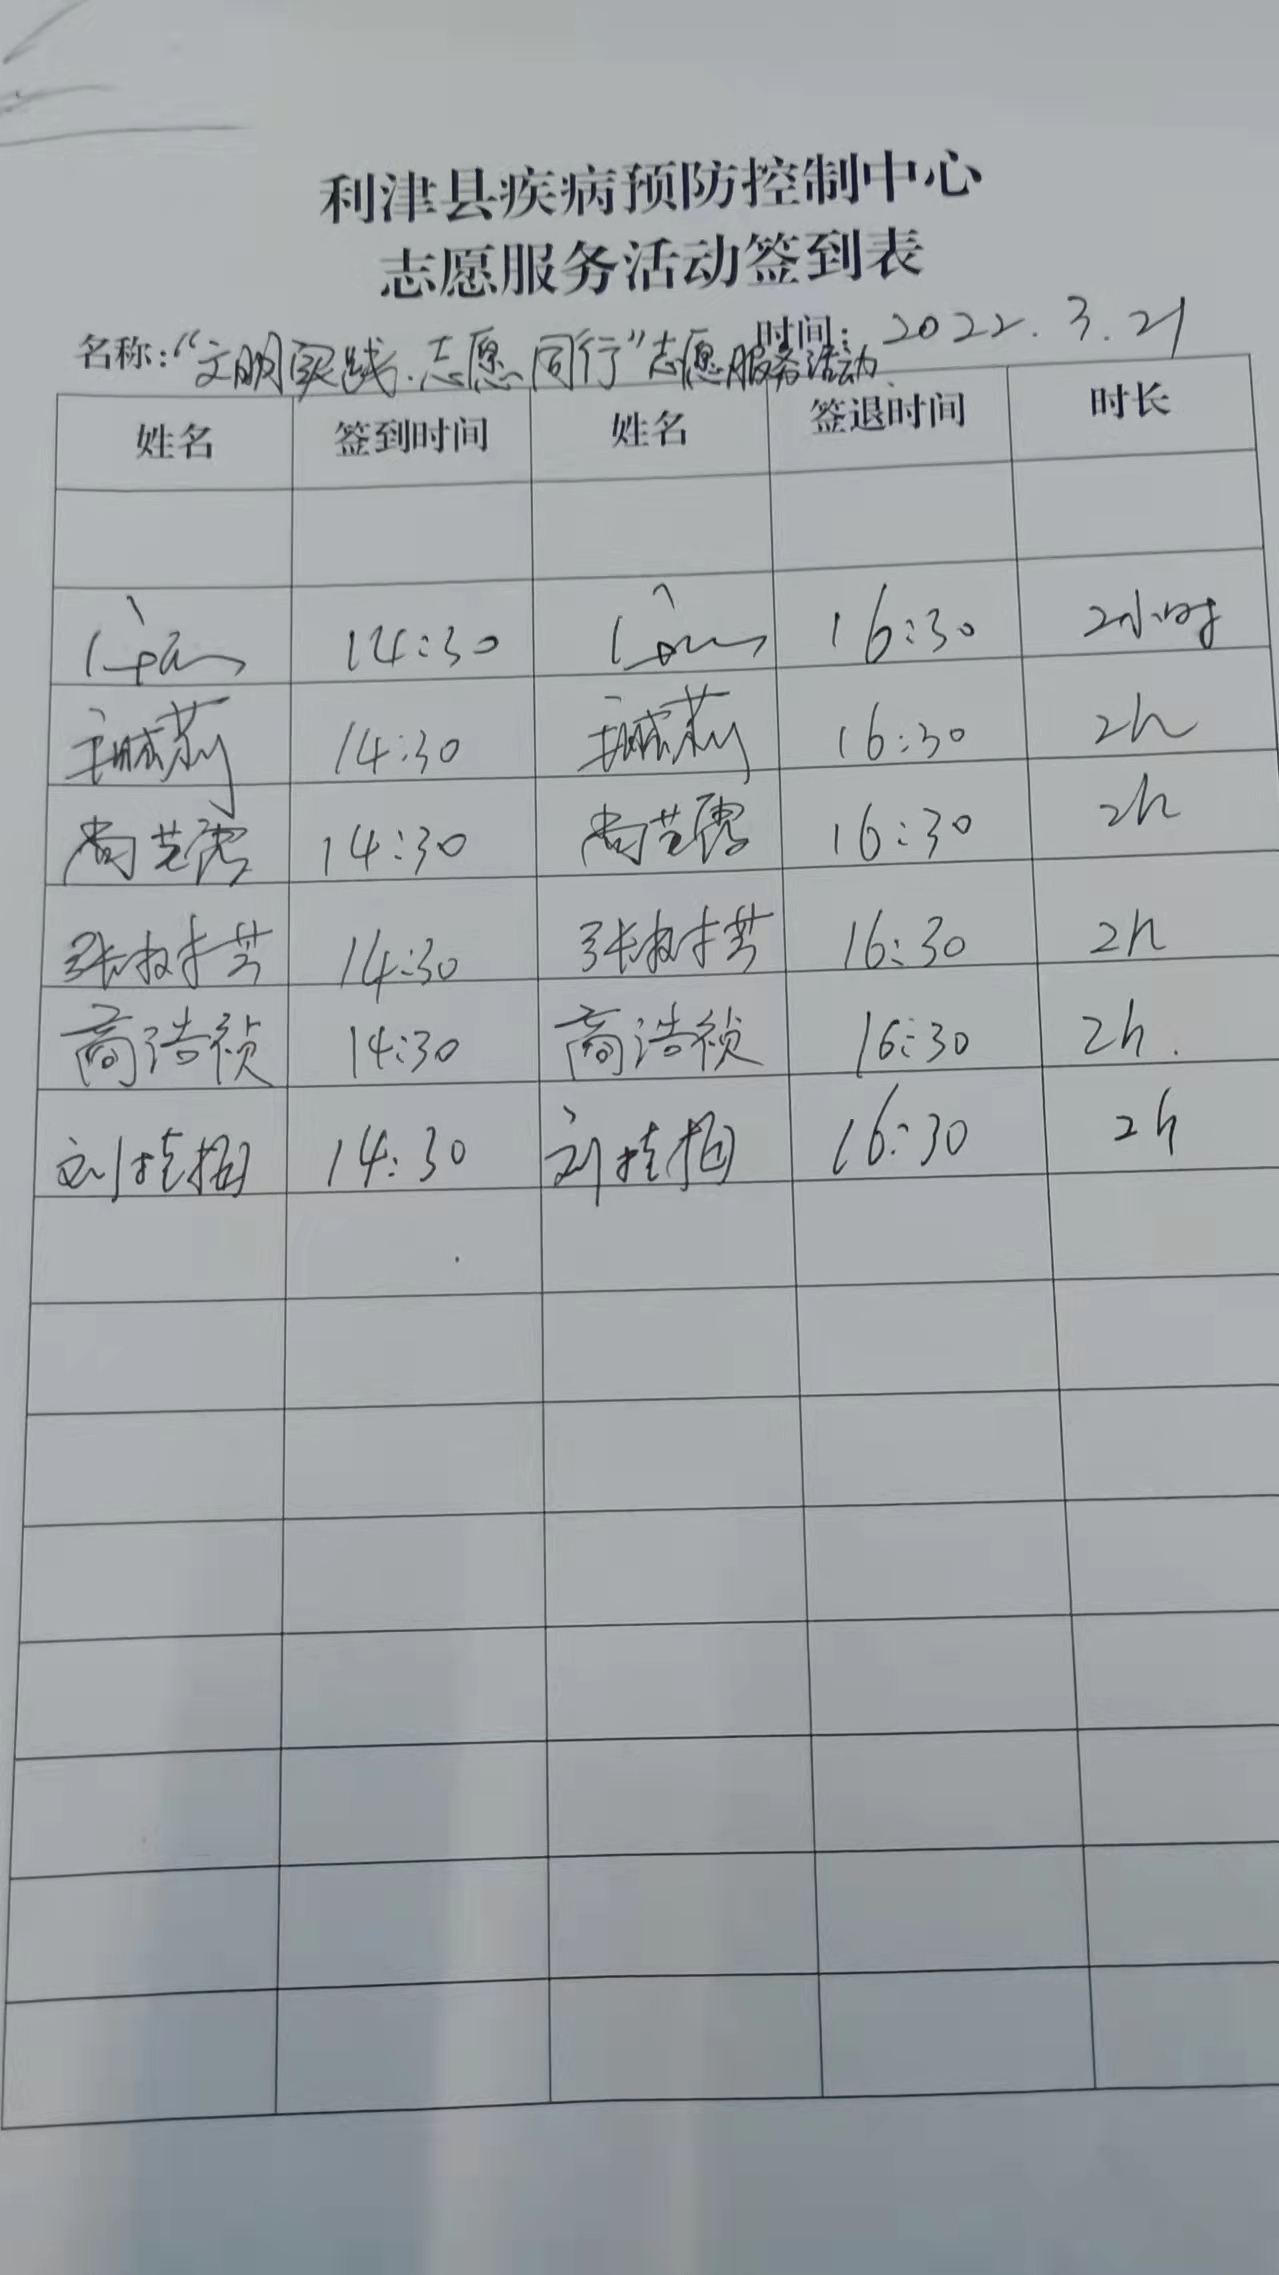 利津县疾病预防控制中心
志愿服务活动签到表
名称:“文明实践.志愿同行”志愿服务活动 时间: 2022.3.21
姓名 签到时间 姓名 签退时间 时长
14:30 16:30 2小时
14:30 16:30 2h
尚芸霞 14:30 尚芸霞 16:30 2h
张树芳 14:30 张树芳 16:30 2h
商浩祯 14:30 商浩祯 16:30 2h.
刘 14:30 刘 16:30 2h